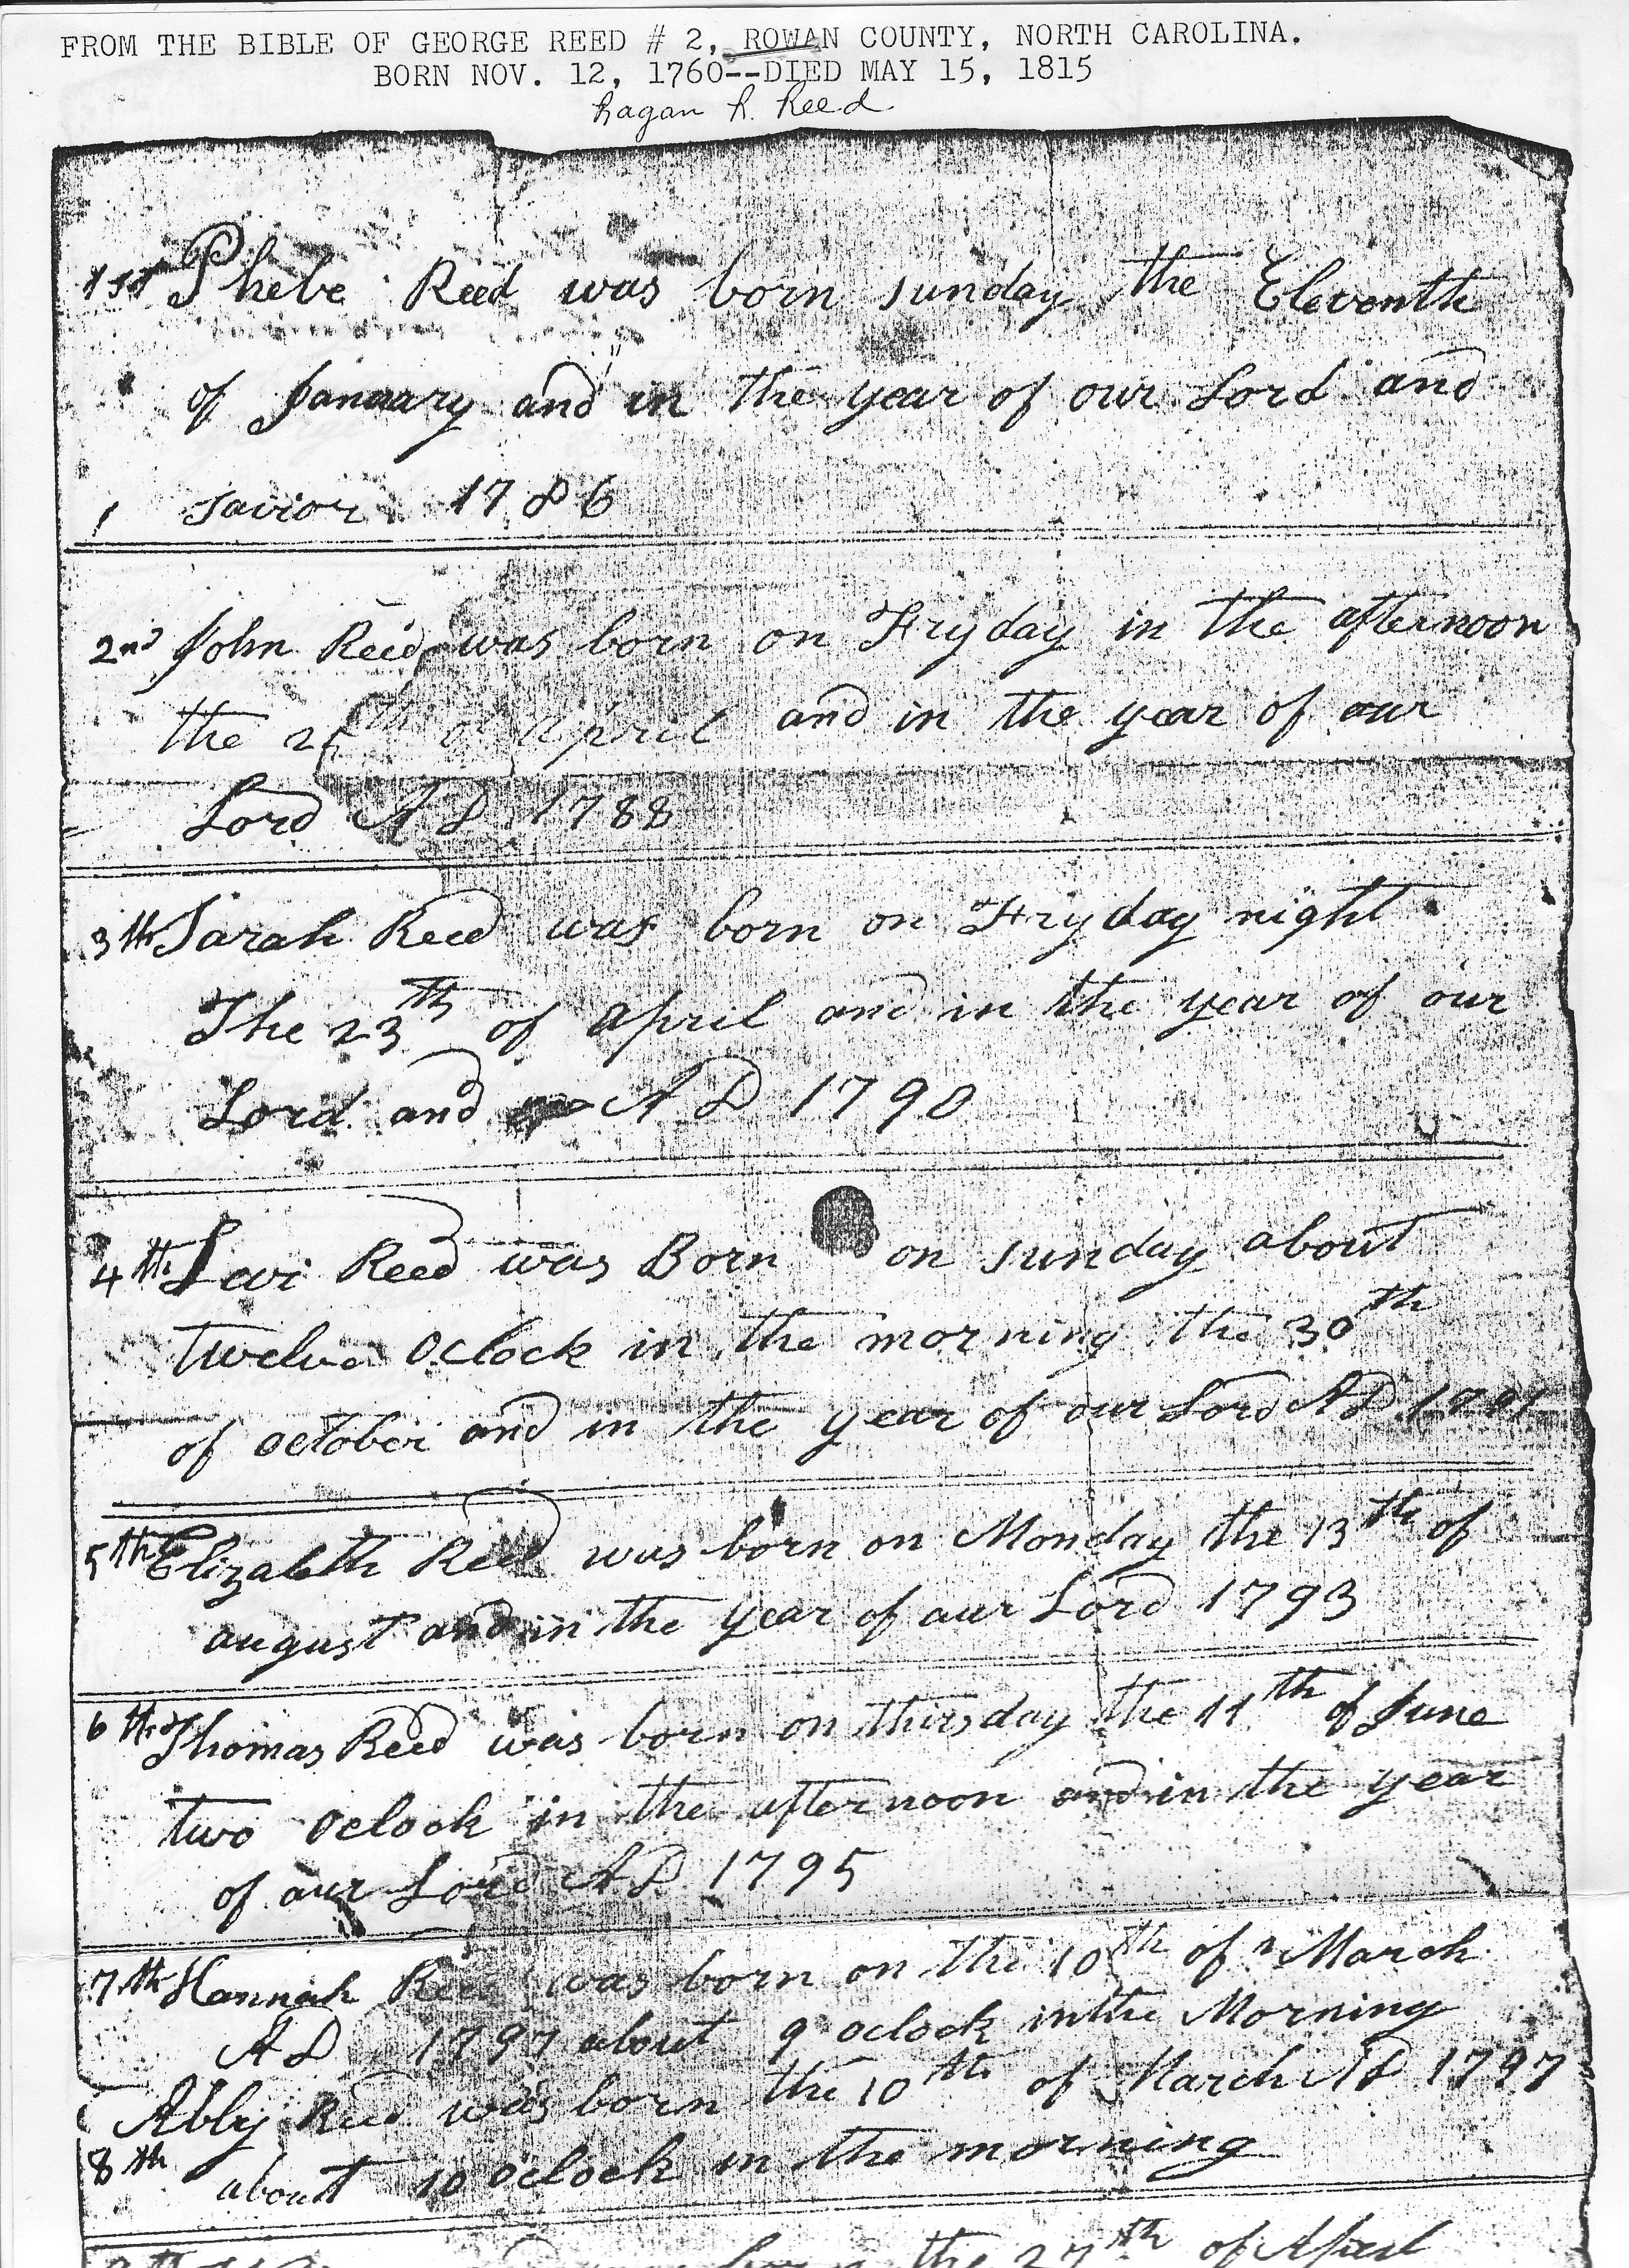 FROM THE BIBLE OF GEORGE REED # 2, ROWAN COUNTY, NORTH CAROLINA.
BORN NOV. 12, 1760--DIED MAY 15, 1815
Ragan R. Reed
1st Phebe Reed was born sunday the Eleventh
of January and in the year of our Lord and
1 savior 1786
2nd John Reed was born on Fryday in the afternoon
the of April and in the year of our
Lord A D 1788
3th Sarah Reed was born on Fryday night
The 23th of april and in the year of our
Lord and A D 1790
4th Levi Reed was Born on sunday about
twelve oclock in the morning the 30th
of october and in the year of our Lord AD
5th Elizabeth Reed was born on Monday the 13th of
august and in the year of our Lord 1793
6th Thomas Reed was born on thirsday the 11th of June
two oclock in the afternoon and in the year
of our Lord AD 1795
7th Hannah Reed was born on the 10th of March
AD 1797 about 9 oclock in the Morning
Abby Reed was born the 10th of March AD 1797
8th about 10 oclock in the morning
born the 27th of April